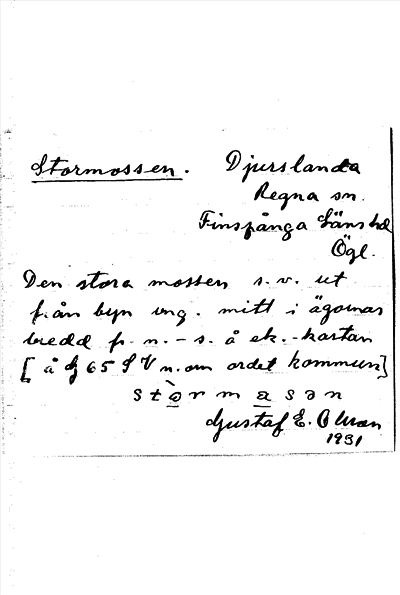 Stormossen. Djurslanda
Regna sn.
Finspånga Läns hd
Ögl.
Den stora mossen s.v. ut
från byn ung. mitt i ägornas
bredd fr. n. – s. å ek.-kartan
[å bl 65 S V n. om ordet kommun]
stòrmasən
Gustaf E. Olman
1931